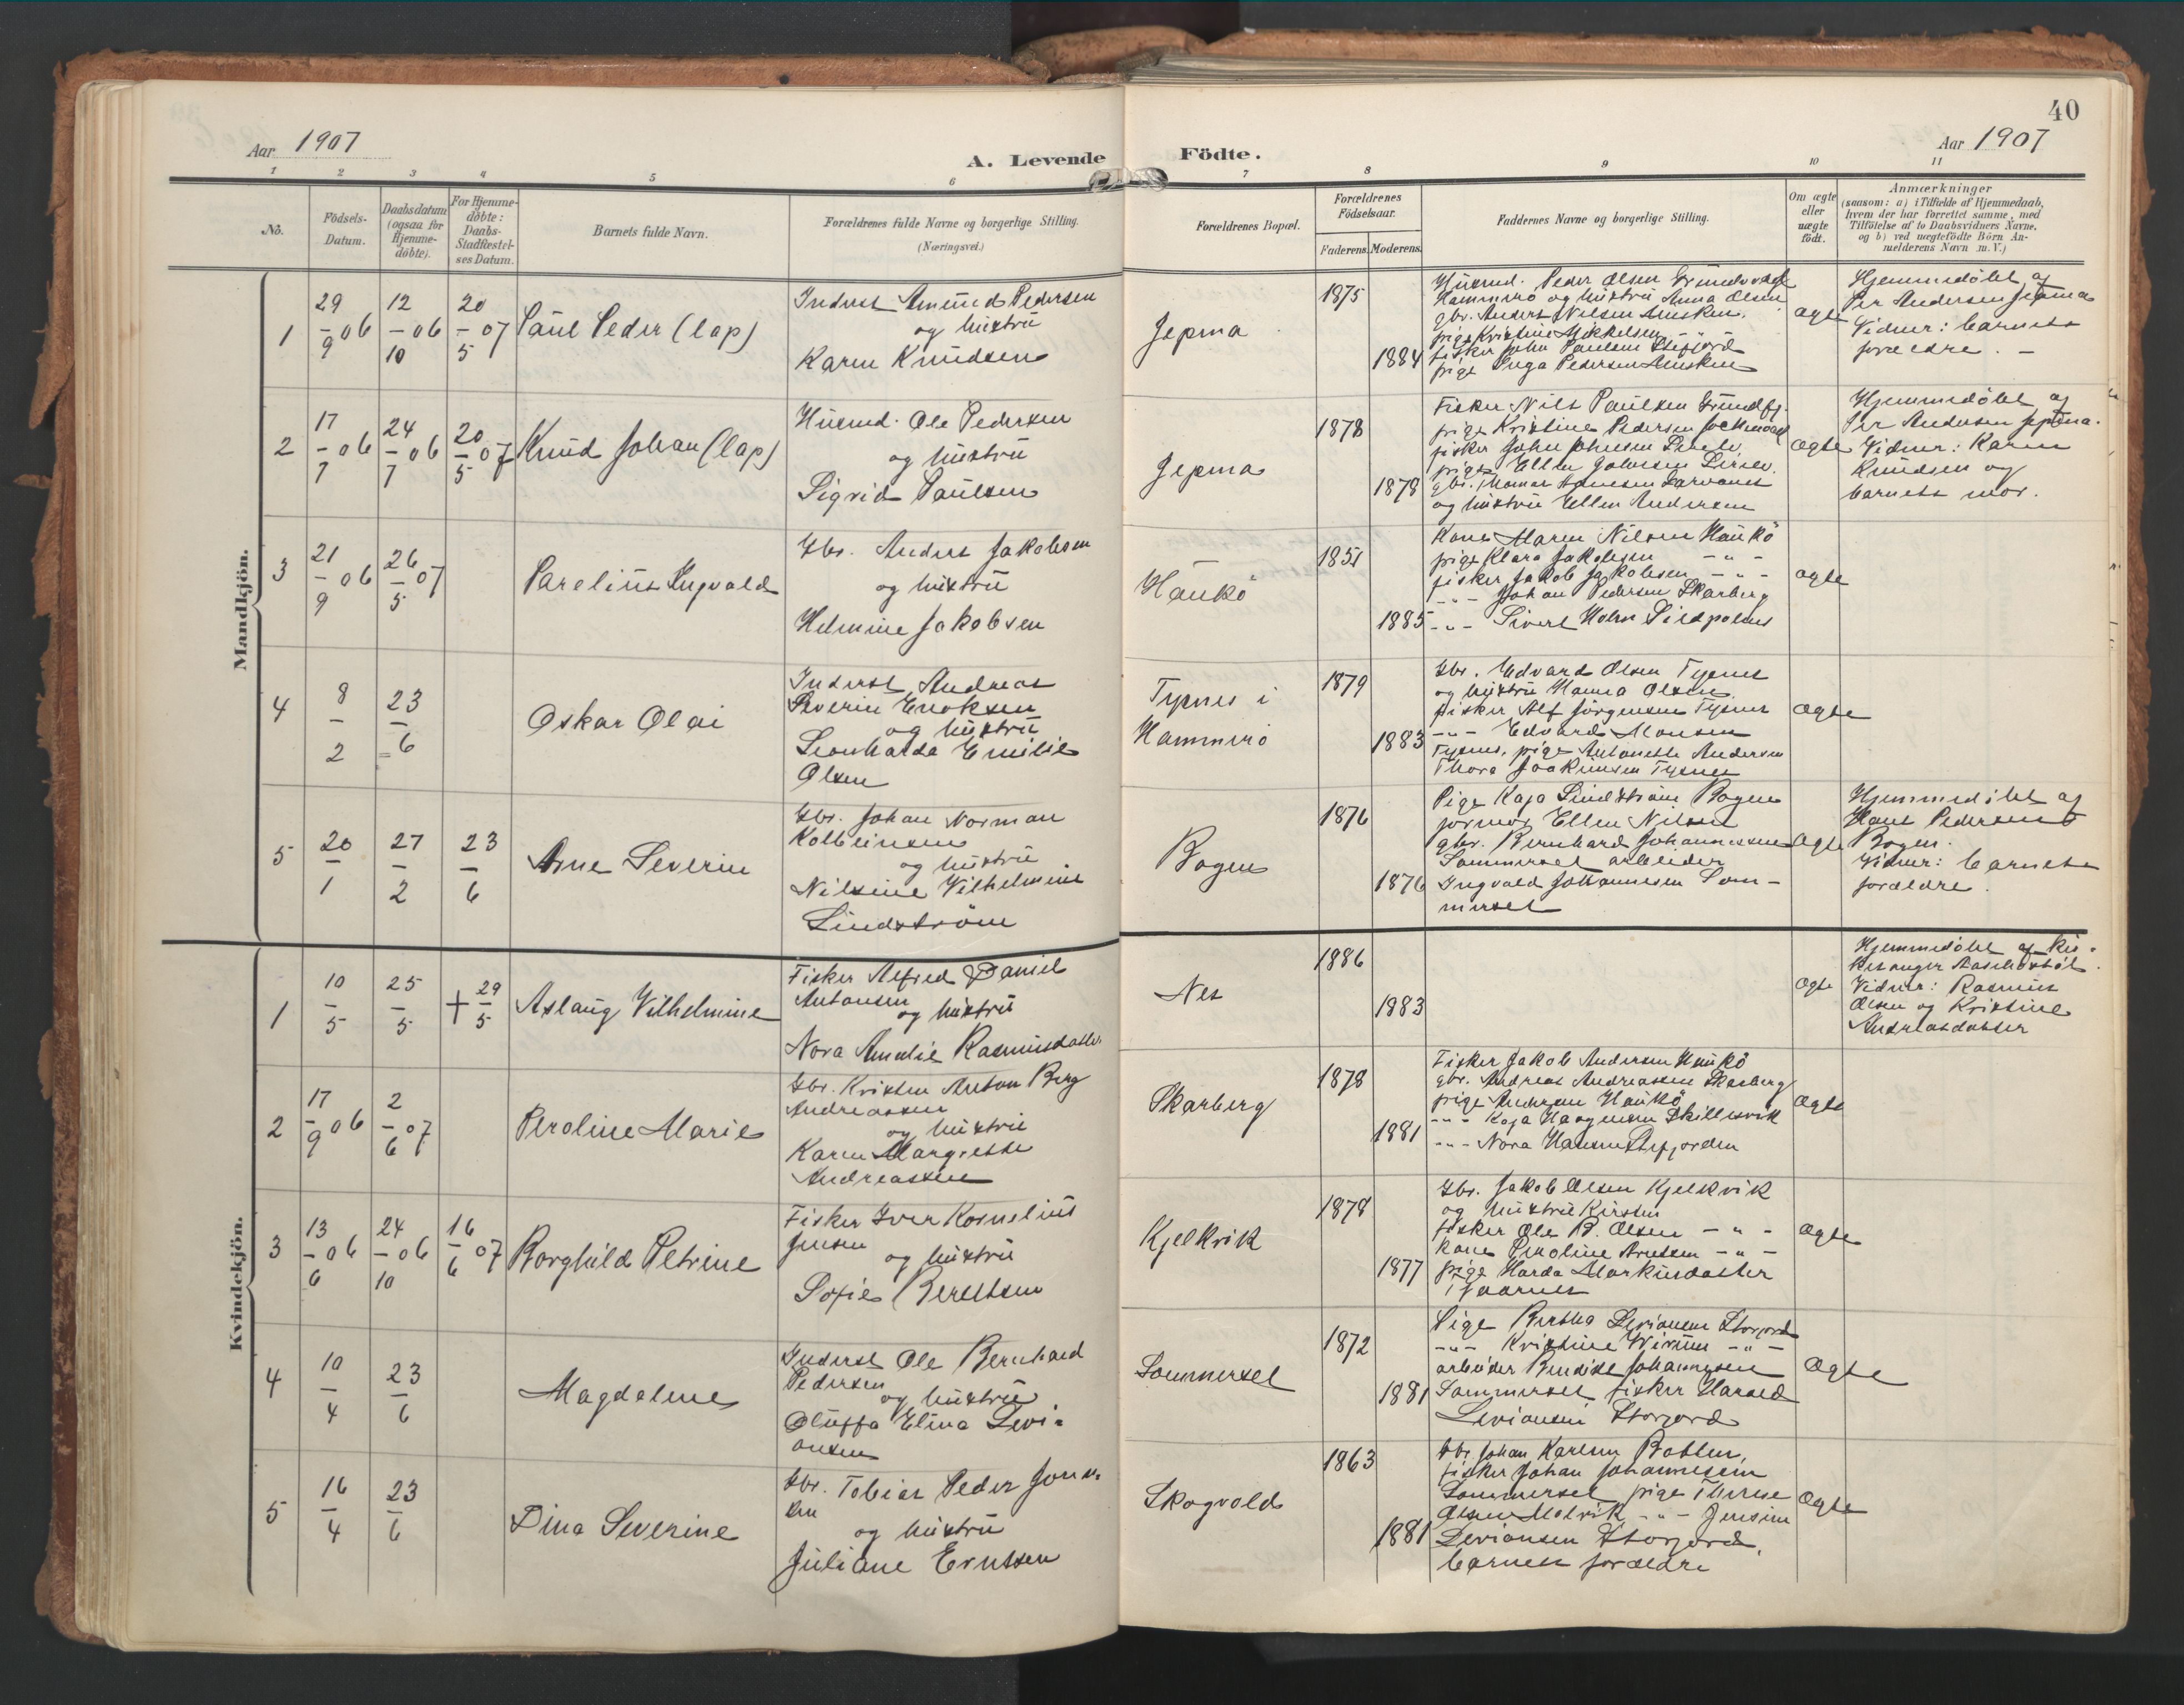 Aar 1907
A. Levende
Födte.
40
Aar 1907
1 2 3 4 5 6 7 8 9 10 11
No.
Födsels-
Datum.
Daabsdatum
(ogsaa for
Hjemme-
döbte).
For Hjemme-
döbte:
Daabs-
Stadfæstel-
ses Datum.
Barnets fulde Navn.
Forældrenes fulde Navne og borgerlige Stilling.
(Næringsvei.)
Forældrenes Bopæl.
Forældrenes
Födselsaar.
Faderens.
Moderens.
Faddernes Navne og borgerlige Stilling.
Om ægte
eller
uægte
födt.
Anmærkninger
(saasom: a) i Tilfælde af Hjemmedaab,
hvem der har forrettet samme, med
Tilföielse af to Daabsvidners Navne,
og b) ved uægtefödte Börn An-
melderens Navn m. V.)
Mandkjön.
1
29/9 06
12/10 06
20/5 07
Paul Peder (lap)
Inderst Amund Pedersen
og hustru
Karen Knudsen
Jepma
1875
1884
Husmd. Peder Olsen
Hammerö og hustru Anna Olsen
gbr. Anders Nilsen
pige Kristine Mikkelsen
fisker John Paulsen
pige Inga Pedersen
ægte
Hjemmedöbt af
Per Andersen Jepma
Vidner: barnets
forældre. -
2
17/7 06
24/7 06
20/5 07
Knud Johan (lap)
Husmd. Ole Pedersen
og hustru
Sigrid Paulsen
Jepma
1878
1878
Fisker Nils Paulsen
pige Kristine Pedersen
fisker John Johnsen
pige Ellen
gbr. Thomas
og hustru Ellen Andersen
ægte
Hjemmedöbt af
Per Andersen Jepma.
Vidner: Karen
Knudsen og
barnets mor.
3
21/9 06
26/5 07
Parelius Ingvald
Gbr. Anders Jakobsen
og hustru
Helmine Jakobsen
Haukö
1851
1885
Kone Maren Nilsen Haukö
pige Klara Jakobsen - " -
fisker Jakob Jakobsen - " -
- " - Johan Pedersen Skarberg
- " - Sivert Holm
ægte
4
8/2
23/6
Oskar Olai
Inderst Andreas
Severin Enoksen
og hustru
Leonharda Emilie
Olsen
Tysnes i
Hammerö
1879
1883
Gbr. Edvard Olsen Tysnes
og hustru Hanna Olsen.
Fisker Alf Jörgensen Tysnes
- " - Edvard Monsen
Tysnes, pige Antonette Andersen
Thora Joakimsen Tysnes
ægte
5
20/1
27/2
23/6
Arne Severin
Gbr. Johan Norman
Kolbeinsen
og hustru
Nilsine Vilhelmine
Lindström
Bogen
1876
1876
Pige Kaja Lindström Bogen
jormor Ellen Nilsen
gbr. Bernhard Johannessen
Sommersel arbeider
Ingvald Johannesen Som-
mersel
ægte
Hjemmedöbt af
Hans Pedersen
Bogen.
Vidner: barnets
forældre.
Kvindekjön.
1
10/5
25/5
† 29/5
Aslaug Vilhelmine
Fisker Alfred Daniel
Antonsen
og hustru
Nora Amalie Rasmusdatter
Nes
1886
1883
ægte
Hjemmedöbt af kir-
kesanger
Vidner: Rasmus
Olsen og Kristine
Andreasdatter
2
17/9 06
2/6 07
Peroline Marie
Gbr. Kristen Anton Berg
Andreassen
og hustru
Karen Margrethe
Andreassen
Skarberg
1878
1881
Fisker Jakob Andersen Haukö
gbr. Andreas Andreassen Skarberg
pige Andersen Haukö
- " - Kaja Haagensen
- " - Nora Hansen
ægte
3
13/6 06
24/10 06
16/6 07
Borghild Petrine
Fisker Iver Kornelius
Jensen
og hustru
Sofie Berntsen
Kjelkvik
1878
1877
Gbr. Jakob Olsen Kjelkvik
og hustru Kirsten
fisker Ole B. Olsen - " -
kone Peroline Arntsen - " -
pige Harda Markusdatter
ægte
4
10/4
23/6
Magdalene
Inderst Ole Bernhard
Pedersen
og hustru
Oluffa Elina Levi-
ansen
Sommersel
1872
1881
Pige Bertha Leviansen Storjord
- " - Kristine - " -
arbeider Benedikt Johannesen
Sommersel, fisker Harald
Leviansen Storjord
ægte
5
16/4
23/6
Dina Severine
Gbr. Tobias Peder Jen-
sen
og hustru
Juliane Erntsen
Skogvold
1863
1881
Gbr. Johan Karlsen Botten,
fisker Johan Johannesen
Sommersel, pige Therese
Olsen Molvik - " - Jensine
Leviansen Storjord,
barnets forældre
ægte